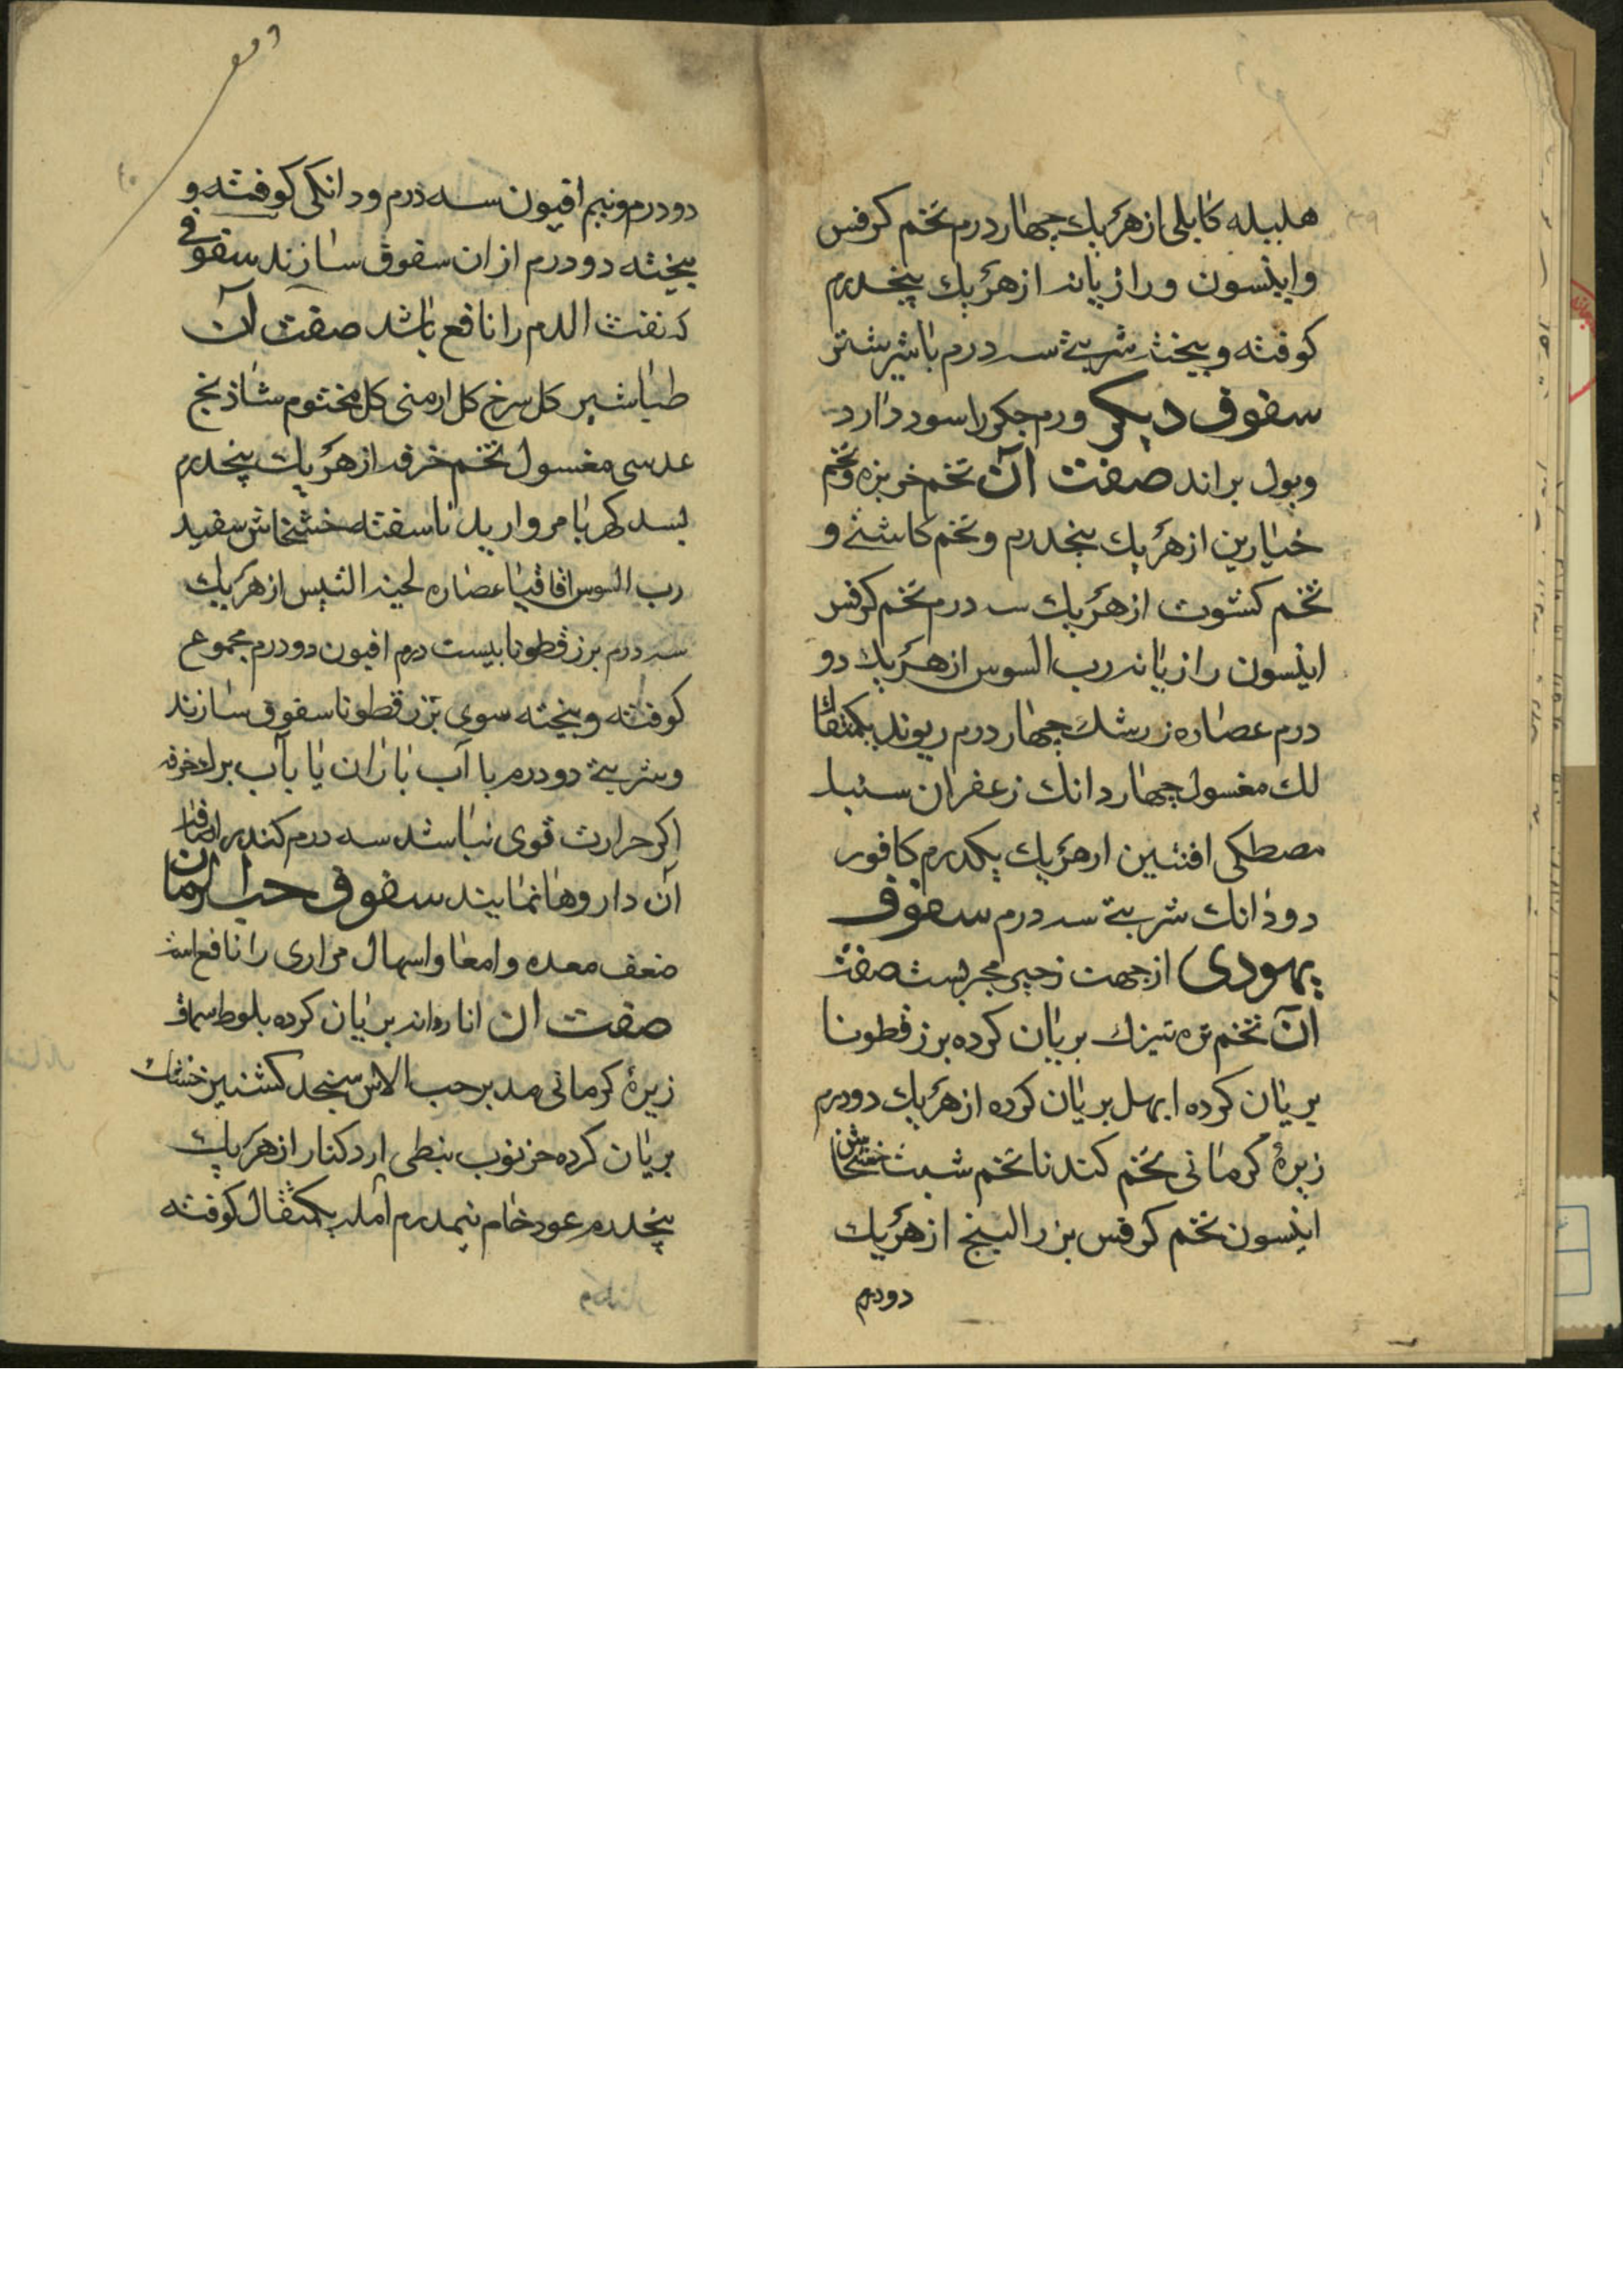 هلیله کابلی از هر یك چهار درم تخم کرفس
وانیسون ورازیانه از هر یك پنجدرم
کوفته وبیخته شربتی سه درم باشیر شتر
سفوف دیکر ورم جکر را سود دارد
وبول براند صفت آن تخم خربزه وتخم
خیارین از هر یك پنجدرم وتخم کاشنی و
تخم کشوث از هر یك سه درم تخم کرفس
انیسون رازیانه رب السوس از هر یك دو
درم عصاره زرشك چهار درم ریوند یکمثقال
لك مغسول چهار دانك زعفران سنبل
مصطکی افنتین از هر یك یکدرم کافور
دو دانك شربتی سه درم سفوف
یهودی از جهت زحیر مجربست صفت
آن تخم تره تیزك بریان کرده بزر قطونا
بریان کرده ابهل بریان کرده از هر یك دودرم
زیرهٔ کرمانی تخم کندنا تخم شبت خشخاش
انیسون تخم کرفس بزر البنج از هر یك
دودرم
دو درم ونیم افیون سه درم ودانکی کوفته و
بیخته دو درم از ان سفوف سازند سفوفی
که نفث الدم را نافع باشد صفت آن
طباشیر کل سرخ کل ارمنی کل مختوم شاذنج
عدسی مغسول تخم خرفه از هر یك پنجدرم
بسد کهربا مروارید ناسفته خشخاش سفید
رب السوس اقاقیا عصاره لحیه التیس از هر یك
سه درم بزر قطونا بیست درم افیون دو درم مجموع
کوفته وبیخته سوی بزر قطونا سفوف سازند
وشربتی دو درم با آب باران یا بآب براد خرفه
اکر حرارت قوی نباشد سه درم کندر اضافه
آن داروها نمایند سفوف حب الرمان
ضعف معده وامعا واسهال مراری را نافع است
صفت ان اناردانه بریان کرده بلوط سماق
زیرهٔ کرمانی مدبر حب الاس سنجد کشنیز خشك
بریان کرده خرنوب نبطی ارد کنار از هر یك
پنجدرم عود خام نیمدرم آمله یکمثقال کوفته